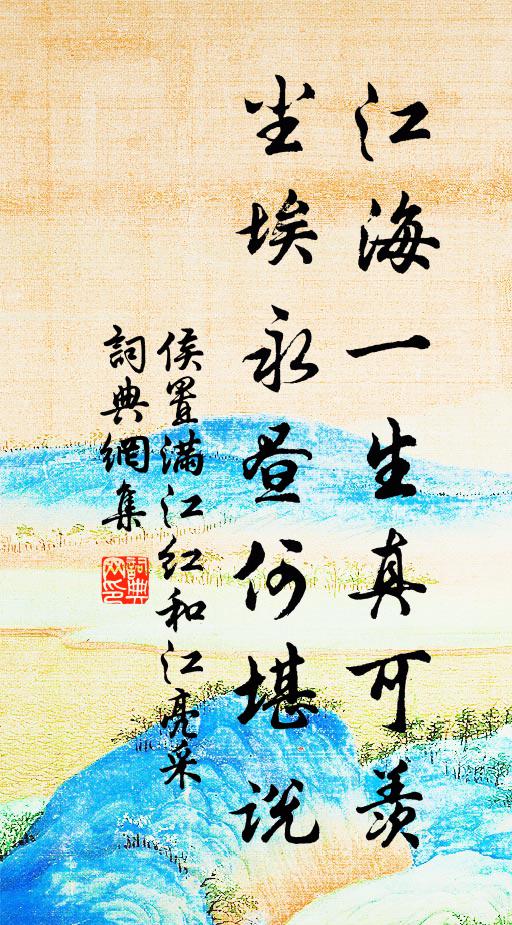 江海一生真可羨
尘埃永昼何堪說
侯置滿江红和江亮采
詞典網集
詞典网印